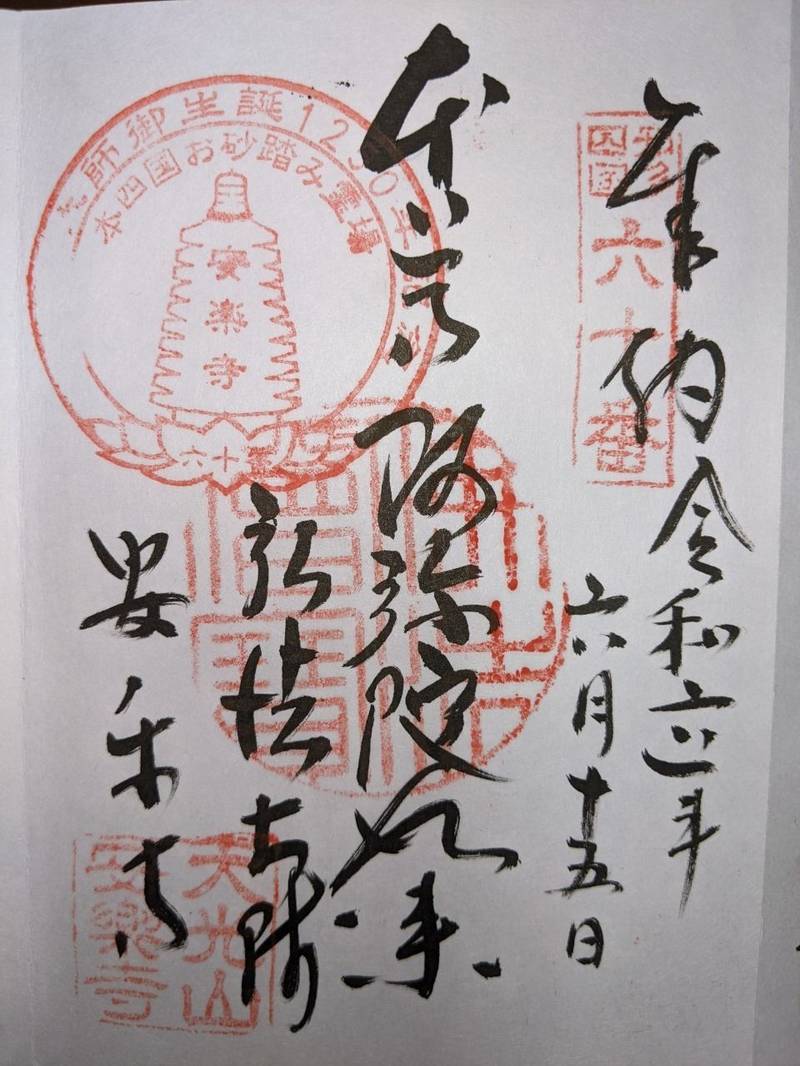 六十番
奉納 令和 年
六月十五日
本尊 阿弥陀如来
弘法大師
安楽寺
大師御生誕1250年
本四国お砂踏み霊場
安楽寺
六十
天光山
安樂寺